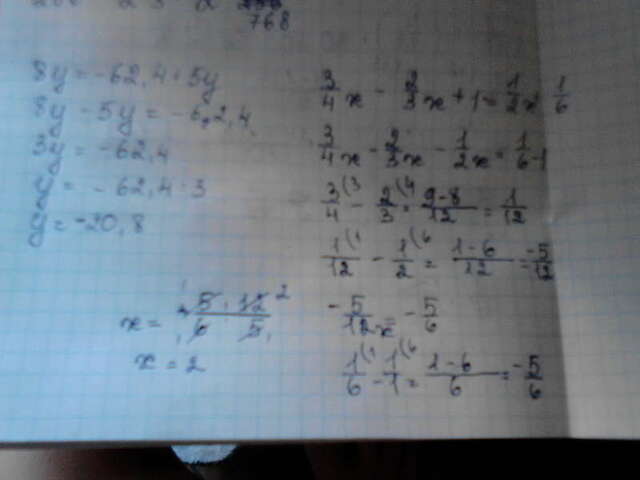 768
8y = -62,4 + 5y
8y - 5y = -62,4
3y = -62,4
y = -62,4 : 3
y = -20,8
3/4 x - 2/3 x + 1 = 1/2 x 1/6
3/4 x - 2/3 x - 1/2 x = 1/6 - 1
3/4 (3 - 2/3 (4 = 9-8/12 = 1/12
1/12 (1 - 1/2 (6 = 1-6/12 = -5/12
-5/12 x = -5/6
1/6 (1 - 1/1 (6 = 1-6/6 = -5/6
x = 5 · 12 2 / 6 5
x = 2